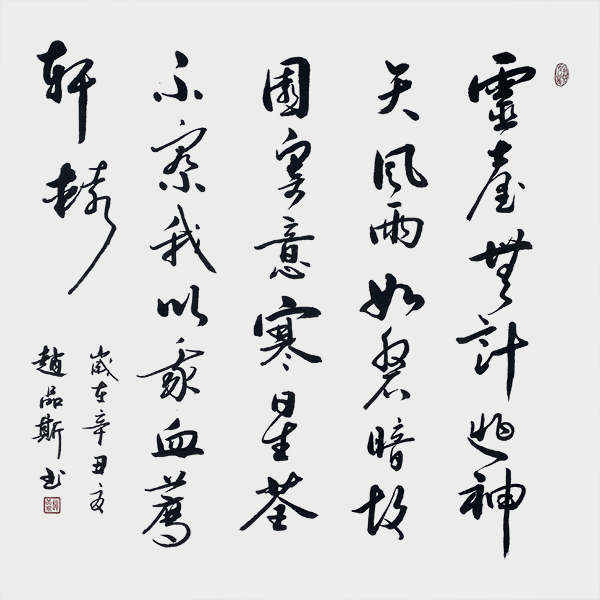 靈臺無計逃神
矢風雨如磐暗故
園寄意寒星荃
不察我以我血薦
軒轅
歲在辛丑夏
趙品斯書